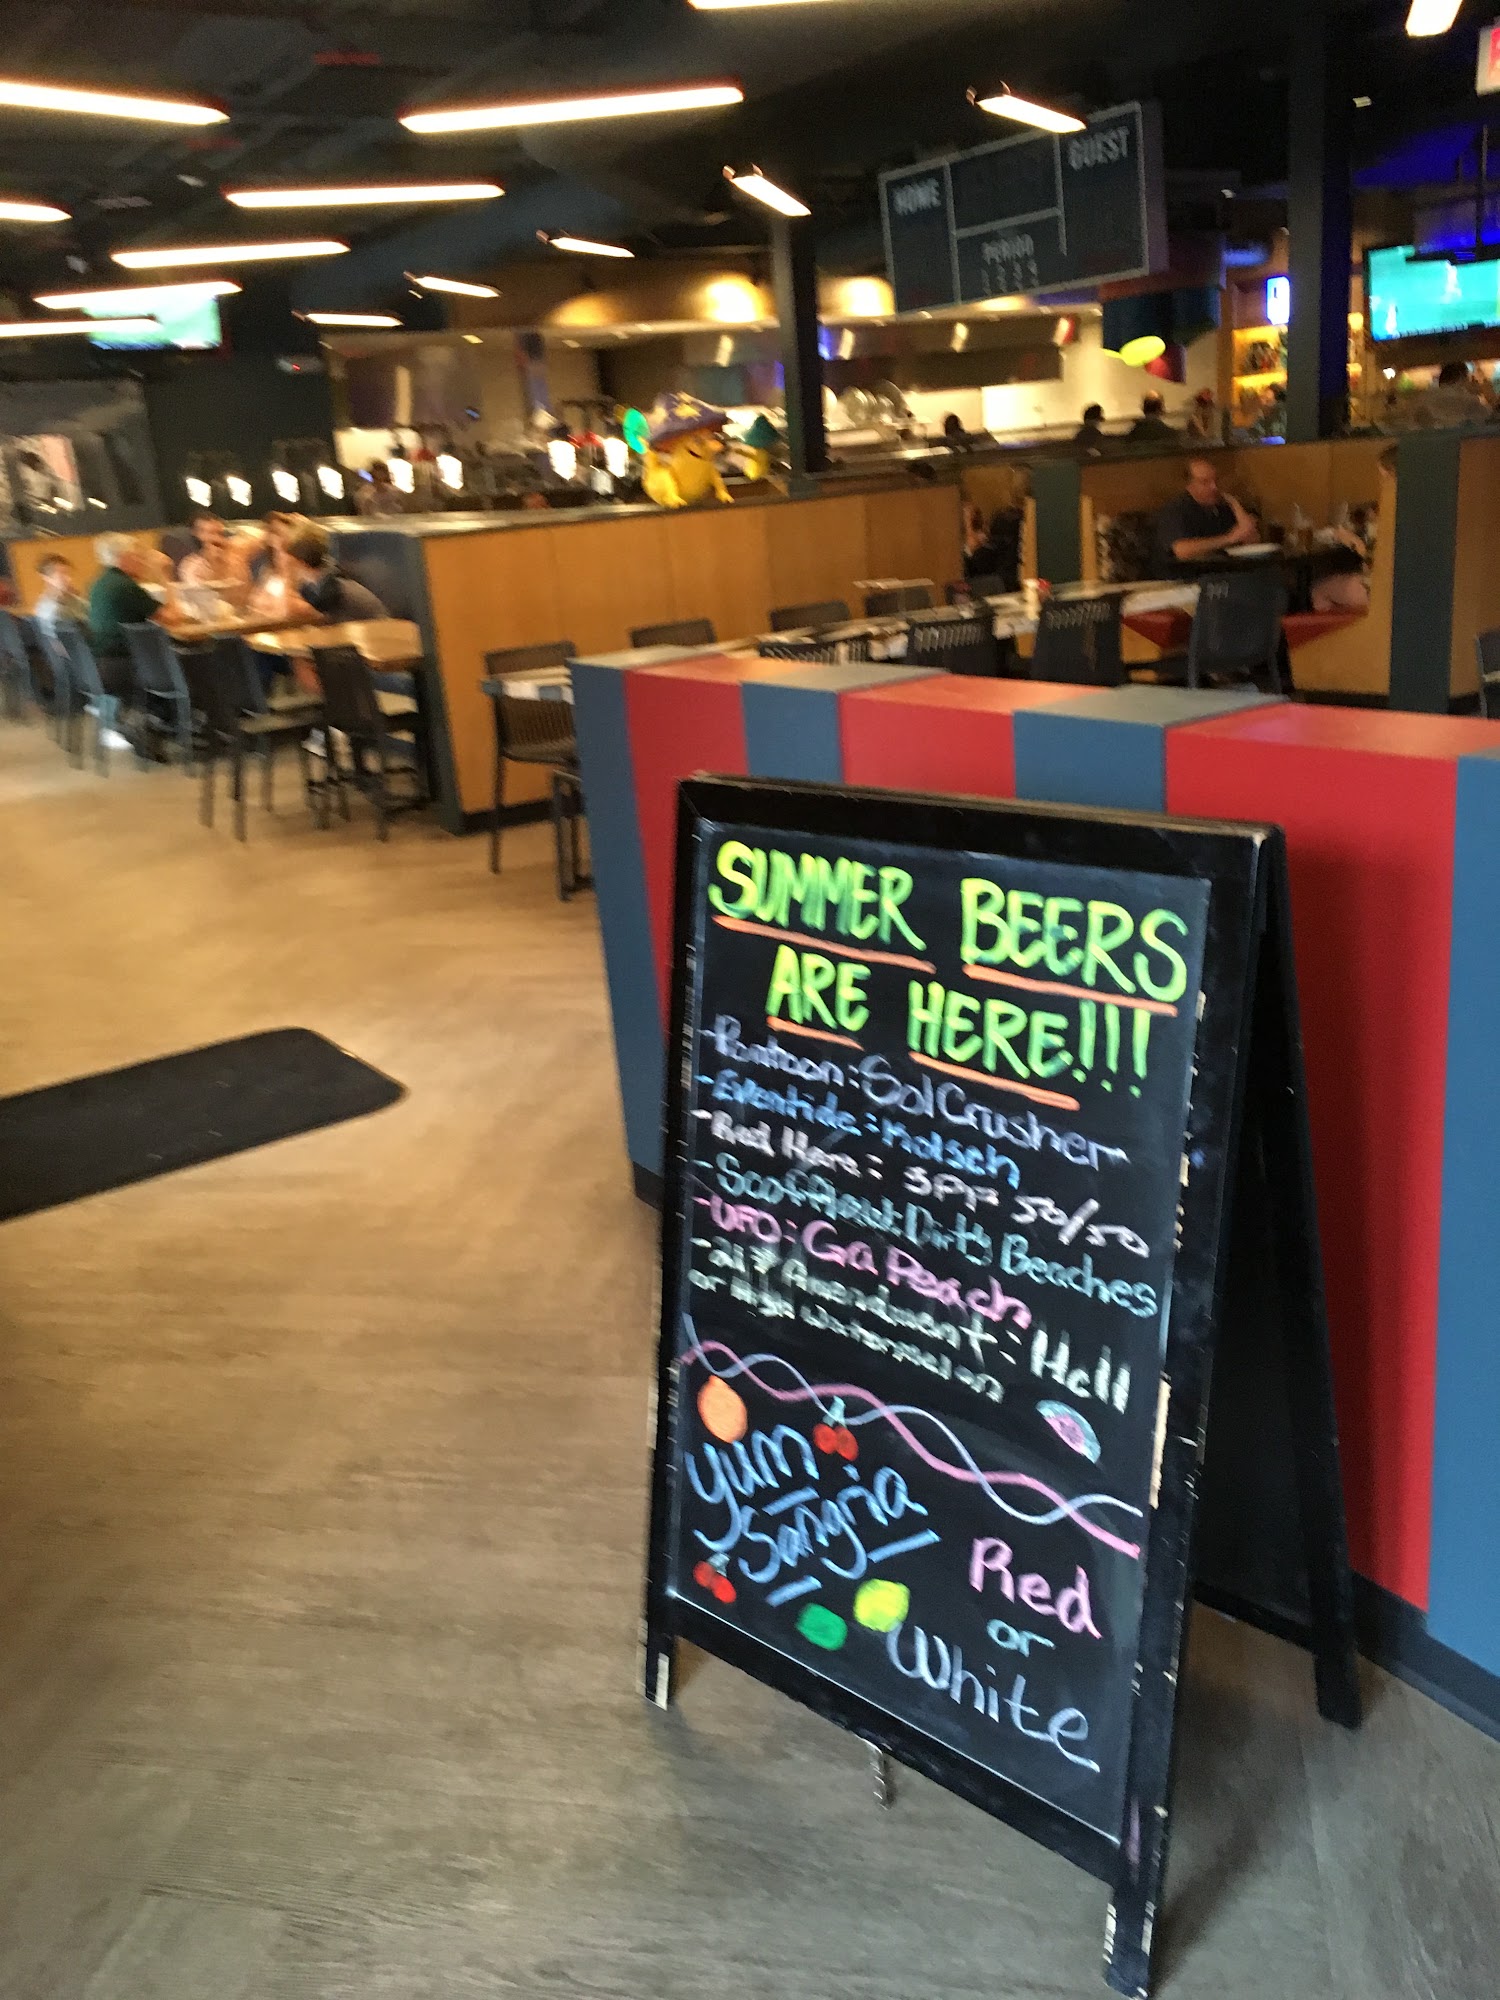 HOME
GUEST
PERIOD
1 2 3 4
SUMMER BEERS
ARE HERE!!!
-Pontoon: Sol Crusher
-Eventide: Kolsch
-Red Hare: SPF 50/50
-Scofflaw: Dirty Beaches
-UFO: Ga Peach
-21st Amendment: Hell
or High Watermelon
Yum
Sangria
Red
or
White